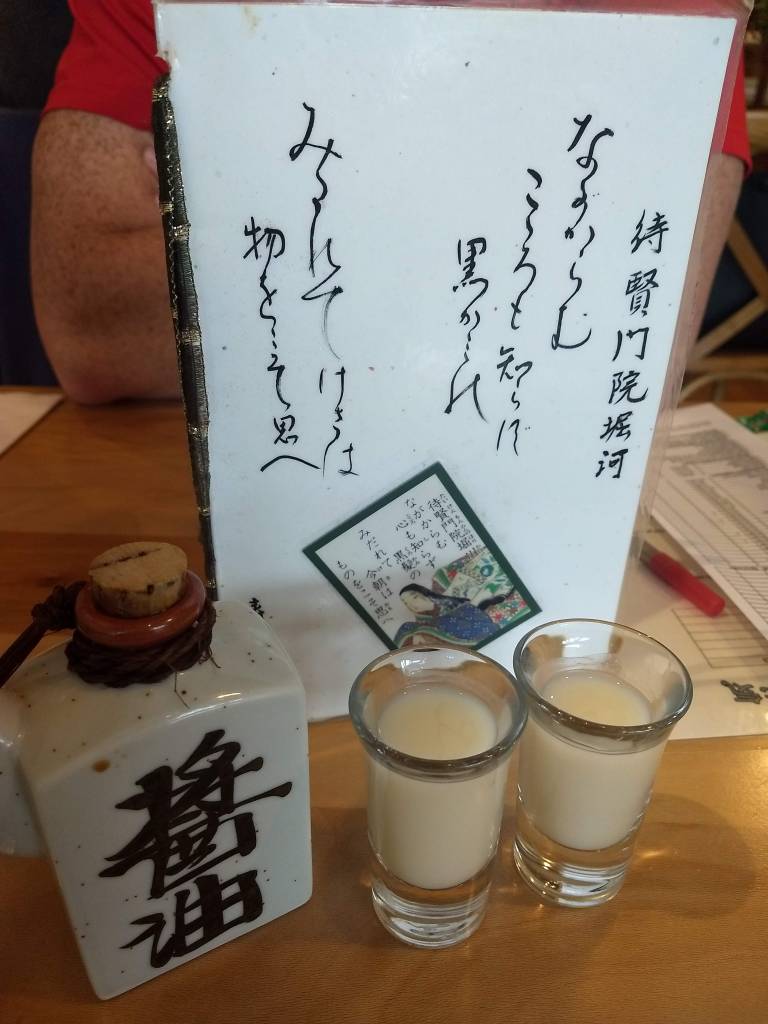 待賢門院堀河
ながからむ
こころも知らず
黒かみの
みだれてけさは
物をこそ思へ
待賢門院堀河
ながからむ
心も知らず
黒髪の
みだれて今朝は
ものをこそ思へ
醤油